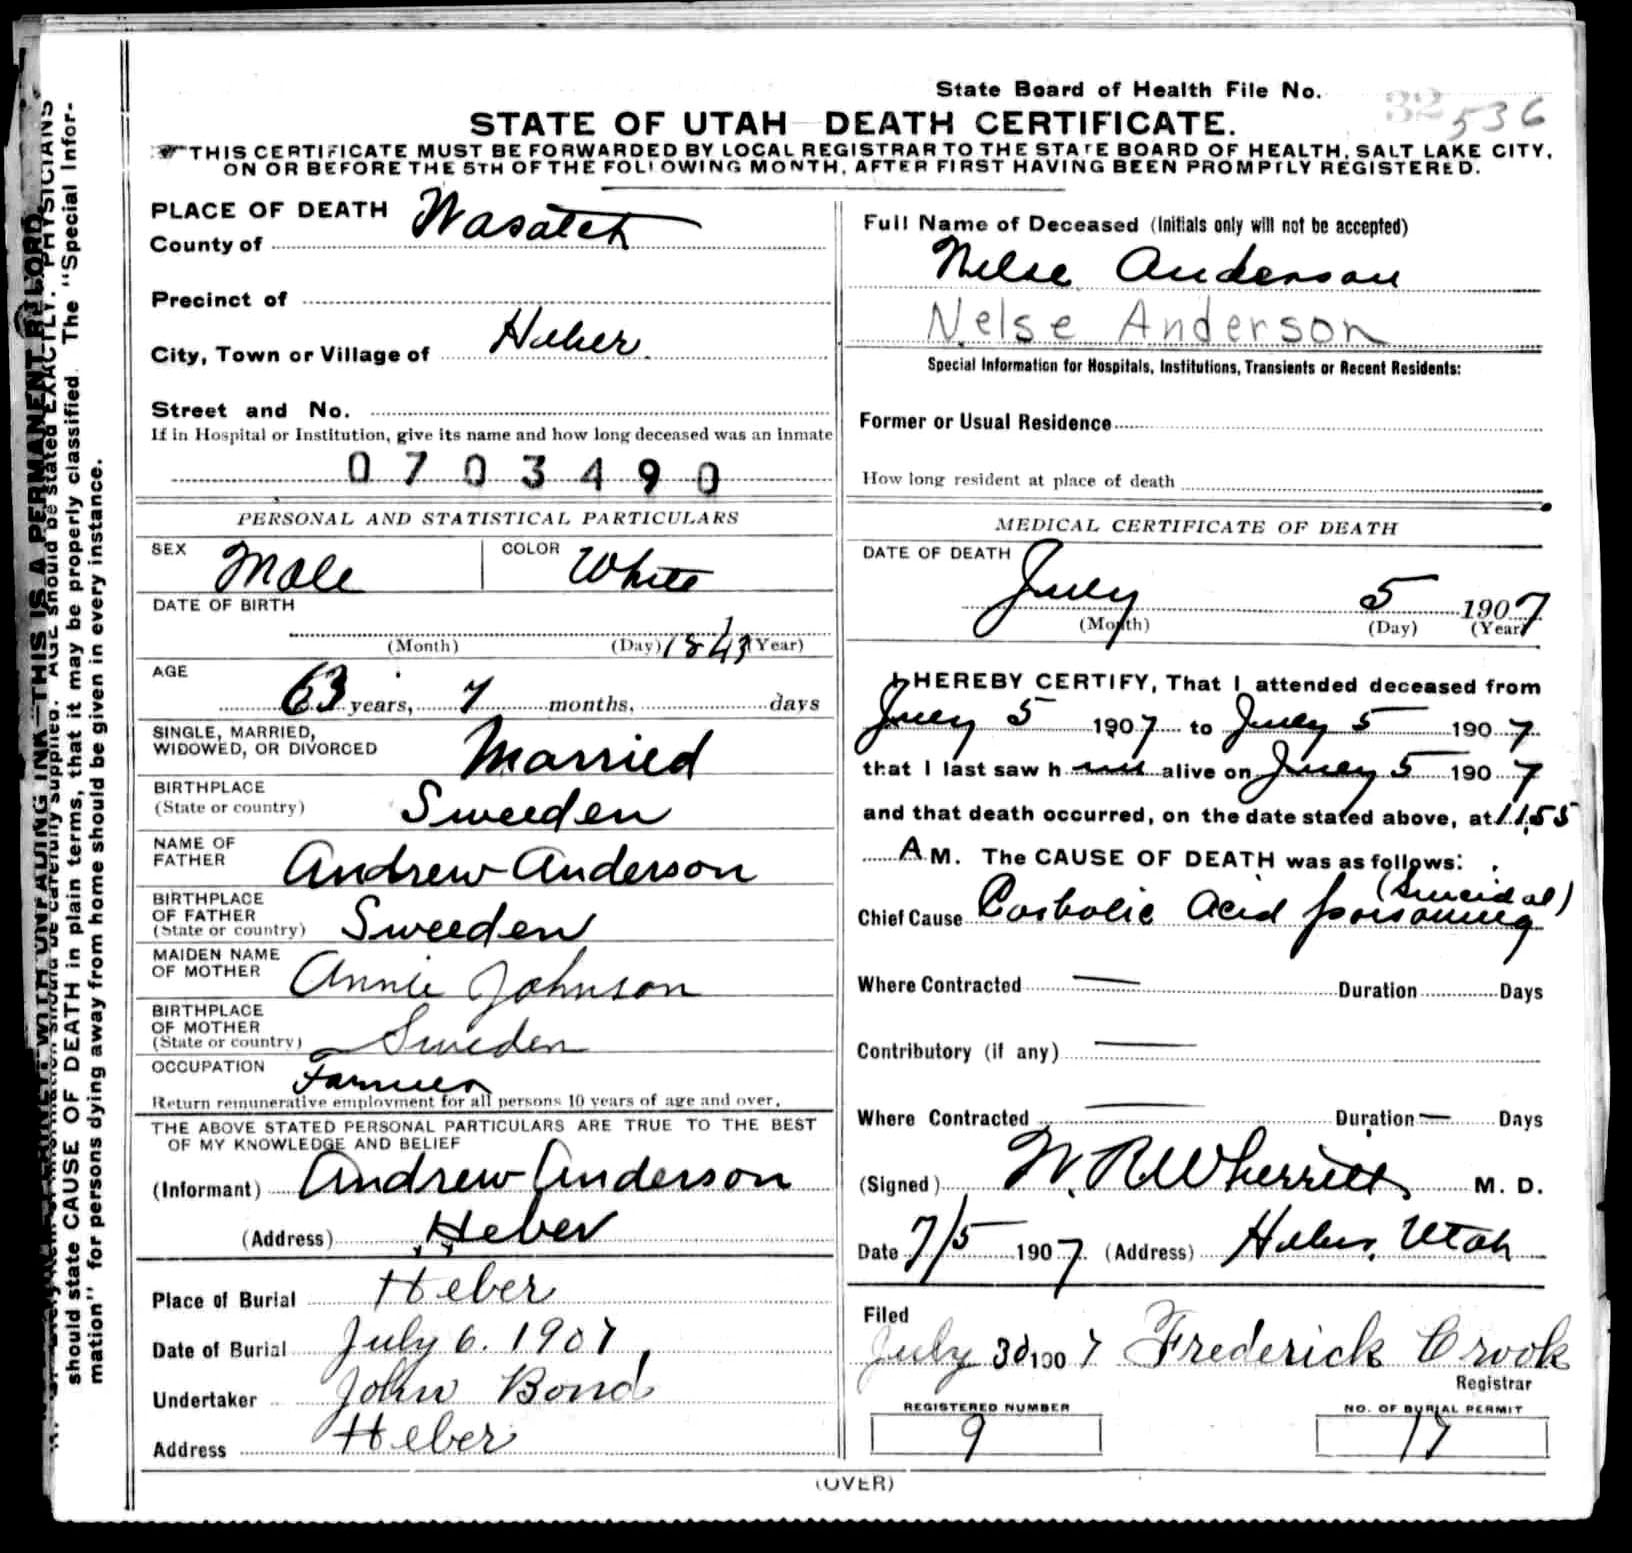 State Board of Health File No. 32 536
STATE OF UTAH DEATH CERTIFICATE.
THIS CERTIFICATE MUST BE FORWARDED BY LOCAL REGISTRAR TO THE STATE BOARD OF HEALTH, SALT LAKE CITY,
ON OR BEFORE THE 5TH OF THE FOLLOWING MONTH, AFTER FIRST HAVING BEEN PROMPTLY REGISTERED.
PLACE OF DEATH
County of Wasatch
Precinct of
City, Town or Village of Heber
Street and No.
If in Hospital or Institution, give its name and how long deceased was an Inmate
0703490
PERSONAL AND STATISTICAL PARTICULARS
SEX Male COLOR White
DATE OF BIRTH
(Month) (Day) 1843 (Year)
AGE
63 years, 7 months, days
SINGLE, MARRIED,
WIDOWED, OR DIVORCED Married
BIRTHPLACE
(State or country) Sweeden
NAME OF
FATHER Andrew Anderson
BIRTHPLACE
OF FATHER
(State or country) Sweeden
MAIDEN NAME
OF MOTHER Annie Johnson
BIRTHPLACE
OF MOTHER
(State or country) Sweden
OCCUPATION Farmer
Return remunerative employment for all persons 10 years of age and over.
THE ABOVE STATED PERSONAL PARTICULARS ARE TRUE TO THE BEST
OF MY KNOWLEDGE AND BELIEF
(Informant) Andrew Anderson
(Address) Heber
Place of Burial Heber
Date of Burial July 6. 1907
Undertaker John Bond
Address Heber
Full Name of Deceased (Initials only will not be accepted)
Nelse Anderson
Nelse Anderson
Special Information for Hospitals, Institutions, Transients or Recent Residents:
Former or Usual Residence
How long resident at place of death
MEDICAL CERTIFICATE OF DEATH
DATE OF DEATH
July 5 1907
(Month) (Day) (Year)
I HEREBY CERTIFY, That I attended deceased from
July 5 1907 to July 5 1907
that I last saw h alive on July 5 1907
and that death occurred, on the date stated above, at 11.55
A M. The CAUSE OF DEATH was as follows:
(Suicidal)
Chief Cause Carbolic Acid poisoning
Where Contracted — Duration Days
Contributory (if any) —
Where Contracted — Duration — Days
(Signed) W. R. Wherritt M. D.
Date 7/5 1907. (Address) Heber, Utah
Filed
July 30 1907 Frederick Crook
Registrar
REGISTERED NUMBER
9
NO. OF BURIAL PERMIT
17
(OVER)
should state CAUSE OF DEATH in plain terms, that it may be properly classified. The "Special Infor-
mation" for persons dying away from home should be given in every instance.